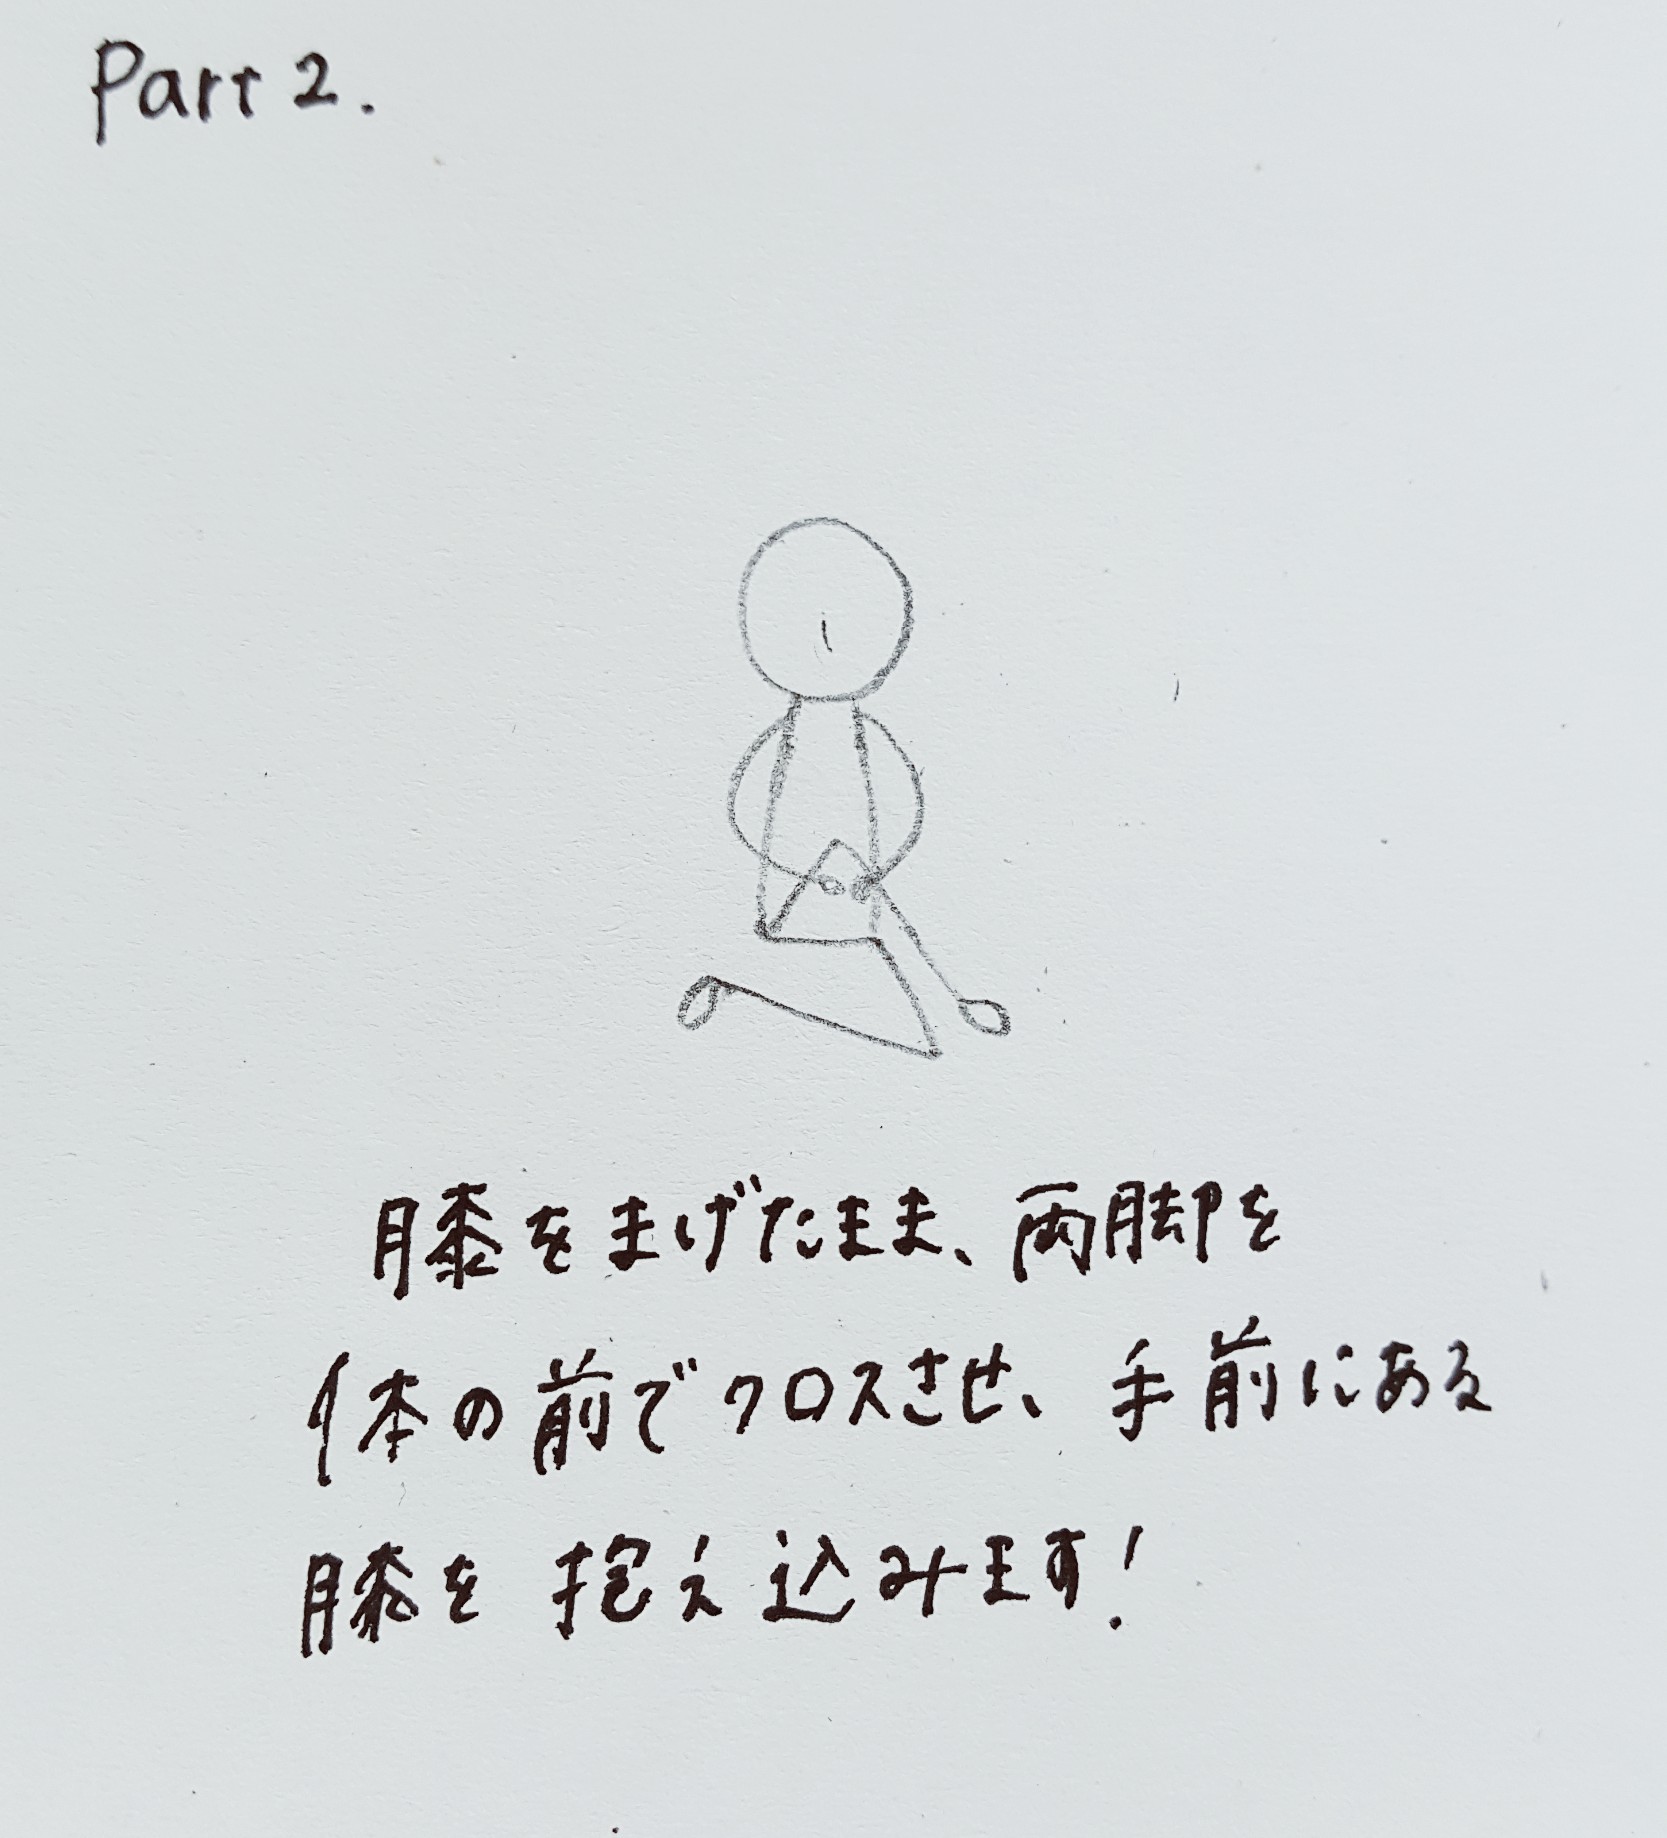 Part 2.
膝をまげたまま、両脚を
体の前でクロスさせ、手前にある
膝を抱え込みます!